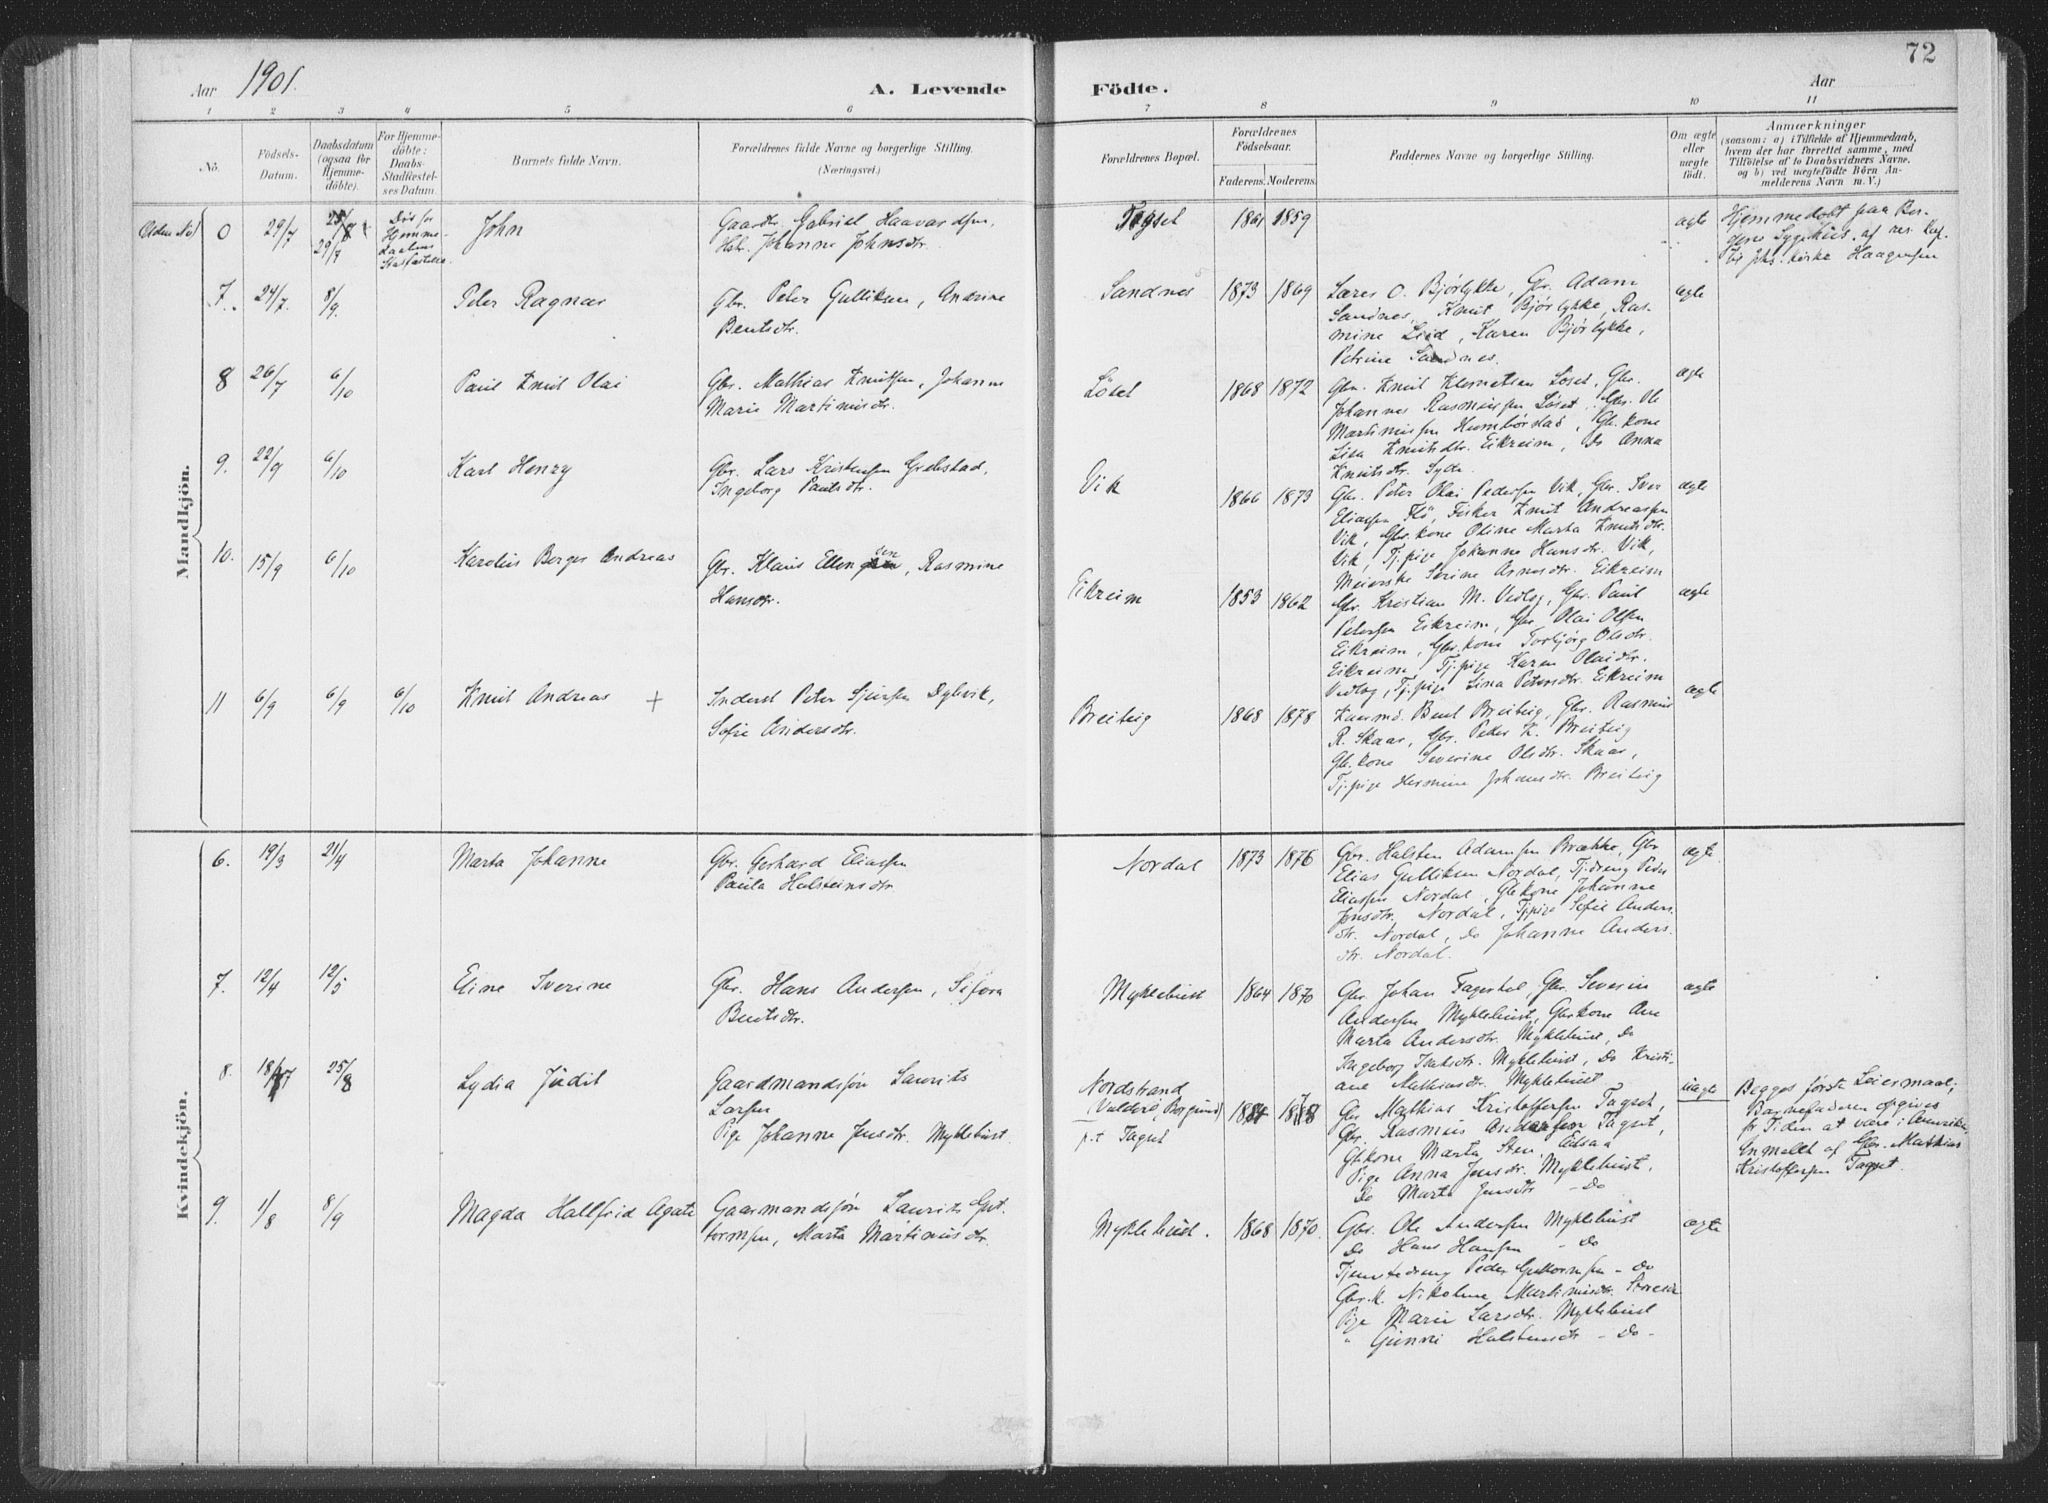 72
Aar 1901. A. Levende Födte. Aar
1 2 3 4 5 6 7 8 9 10 11
Nö.
Födsels-
Datum.
Daabsdatum
(ogsaa for
Hjemme-
döbte).
For Hjemme-
döbte:
Daabs-
Stadfæstel-
ses Datum.
Barnets fulde Navn.
Forældrenes fulde Navne og borgerlige Stilling.
(Næringsvei.)
Forældrenes Bopæl.
Forældrenes
Födselsaar.
Faderens. Moderens.
Faddernes Navne og borgerlige Stilling.
Om ægte
eller
uægte
födt.
Anmærkninger
(saasom: a) i Tilfælde af Hjemmedaab,
hvem der har forrettet samme, med
Tilföielse af to Daabsvidners Navne.
og b) ved uægtefödte Börn An-
melderens Navn m. V.)
Mandkjön.
(Uden No) 0 29/7 29/7
Död før
Hjemme-
daabens
John
Gaardbr. Gabriel Haavardsen,
Hstr. Johanne Johnsdtr.
Tagset 1861 1859 ægte
Hjemmedøbt paa Ber-
gens Sygehus, af res. Kap.
Kirke Haagensen
7. 24/7. 8/9. Peter Ragnar
Gbr. Peter Gulliksen, Andrine
Bentsdtr.
Sandnes 1873 1869
Lærer O. Bjørlykke, Gbr. Adam
Sandnes, Knut Bjørlykke, Ras-
mine Leid, Karen Bjørlykke,
Petrine Sandnes.
ægte
8 26/7 6/10 Paul Knut Olai
Gbr. Mathias Knutsen, Johanne
Marie Martinusdtr.
Løset 1868 1872
Gbr. Knut Klemetsen Løset, Gbr.
Johannes Rasmussen Løset, Gbr. Ole
Martinussen Humborstad, Gbr.kone
Lisa Knutsdtr. Eikreim, Do Anna
Knutsdtr. Sylte.
ægte
9. 22/9 6/10 Karl Henry
Gbr. Lars Kristensen Grebstad,
Ingeborg Paulsdtr.
Vik 1866 1873
Gbr. Peter Olai Pedersen Vik, Gbr. Iver
Eliassen Flö, Fisker Knut Andreassen
Vik, Gbr.kone Oline Marta Knutsdtr.
Vik, Tj.pige Johanne Hansdtr. Vik,
Meierske Serine Arnesdtr. Eikreim
ægte
10. 15/9 6/10 Karolus Berger Andreas
Gbr. Klaus Ellingsen, Rasmine
Hansdtr.
Eikreim 1853 1862
Gbr. Kristian M. Vedlog, Gbr. Paul
Petersen Eikreim, Gbr. Olai Olsen
Eikreim, Gbr.kone Torbjørg Olsdtr.
Eikreim, Tj.pige Karen Olaidtr.
Vedlog, Tj.pige Lina Petersdtr. Eikreim
ægte
11 6/9 6/9 6/10 Knut Andreas +
Inderst Peter Sjursen Dybvik,
Sofie Andersdtr.
Breiteig 1868 1878
Kaarmd. Bent Breiteig, Gbr. Rasmus
R. Skaar, Gbr. Peder K. Breiteig
Gbr.kone Severine Olsdtr. Skaar,
Tj.pige Hermine Johansdtr. Breiteig
ægte
Kvindekjön.
6. 19/3 21/4 Marta Johanne
Gbr. Gerhard Eliassen
Paula Halsteinsdtr
Nordal 1873 1876
Gbr. Halsten Adamsen Brække, Gbr
Elias Gulliksen Nordal, Tj.dreng Peder
Eliassen Nordal, Gbr.kone Johanne
Jonsdtr. Nordal, Tj.pige Sofie Anders-
dtr. Nordal, Do Johanne Anders-
dtr. Nordal.
ægte
7. 12/4 12/5 Eline Iverine
Gbr. Hans Andersen, Sefora
Bentsdtr.
Myklebust 1864 1870
Gbr. Johan Tagestad, Gbr. Severin
Andersen Myklebust, Gbr.kone Ane
Marta Andersdtr. Myklebust, Do
Ingeborg Isaksdtr. Myklebust, Do Kristi-
ane Mathiasdtr. Myklebust
ægte
8. 18/7 25/8 Lydia Judit
Gaardmandssøn Laurits
Larsen
Pige Johanne Jensdtr. Myklebust.
Nordstrand
(Valderö, Borgund)
p.t Tagset
1884 1878
Gbr Mathias Kristoffersen Tagset,
Gbr. Rasmus Andersen Tagset,
Gbr.kone Marta Sten, Aasaa
Pige Anna Jensdtr. Myklebust,
Do Marta Jensdtr - Do
uægte
Begges første Leiermaal;
Barnefaderen opgives
for Tiden at være i Amerika.
Anmeldt af Gbr. Mathias
Kristoffersen Tagset.
9. 1/8 8/9 Magda Hallfrid Agate
Gaardmandssøn Laurits Gut-
tormsen, Marta Martinusdtr.
Myklebust. 1868 1870.
Gbr. Ole Andersen Myklebust
Do Hans Hansen - Do
Tjenestedreng Peder Guttormsen - Do
Gbr.k. Nikoline Martinusdtr. Storesæ
Pige Marie Larsdtr. Myklebust
" Gunni Halstensdtr - Do -
ægte